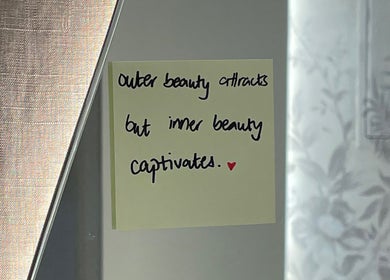 outer beauty attracts
but inner beauty
captivates. ♥